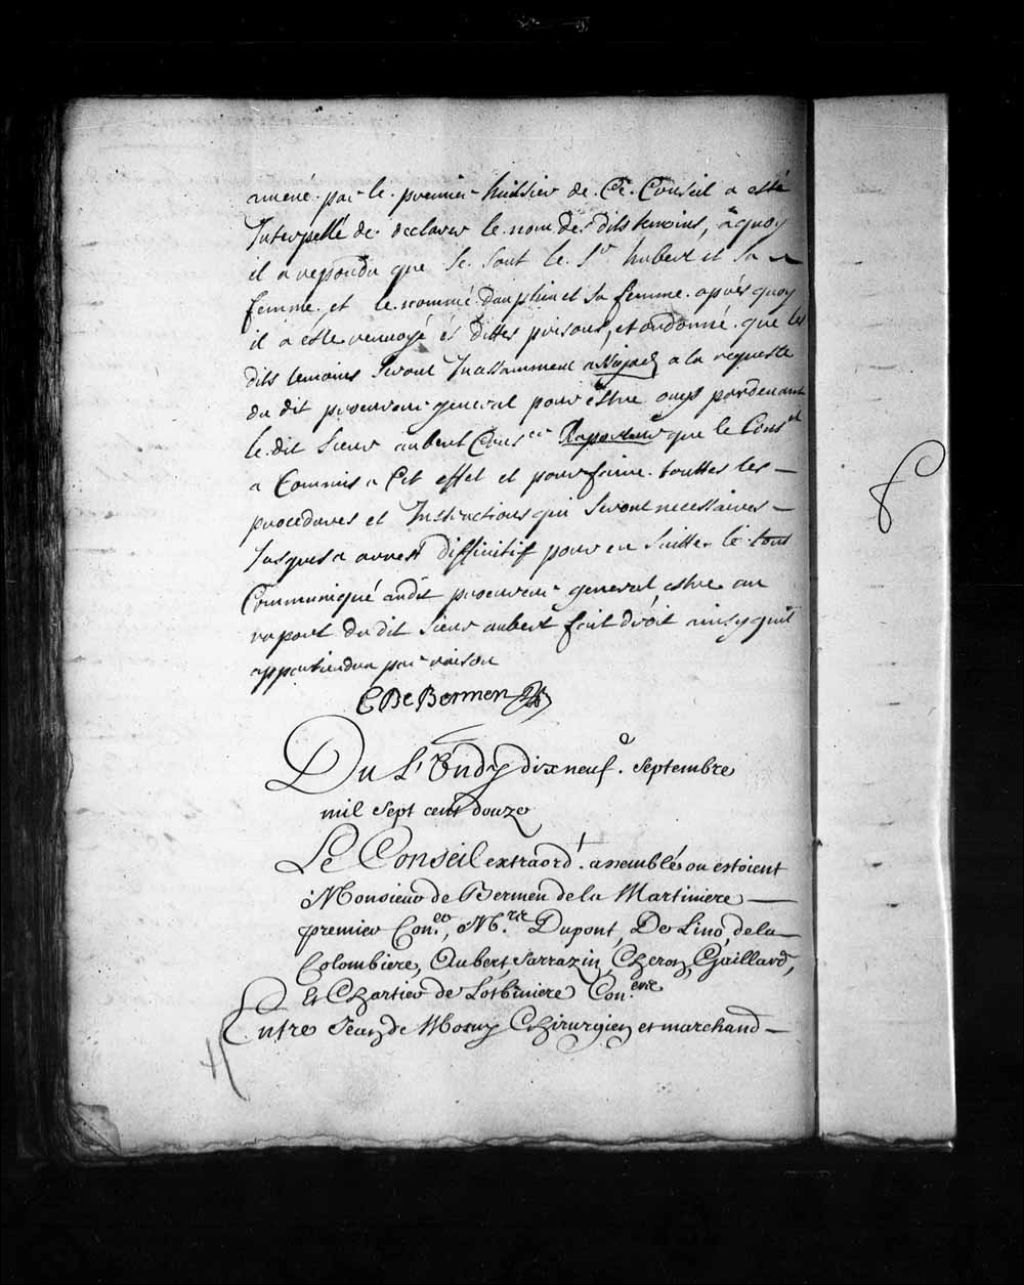 amené par le premier huissier de Ce Conseil a esté
Interpellé de declarer le nom des dits temoins, a quoy
il a repondu que Se Sont le Sr hubert et Sa
femme, et le nommé dauphin et Sa femme apres quoy
il a este renvoyé es dittes prisons, et ordonné que les
dits temoins Seront Incessamment assignez a la requeste
du dit procureur general pour estre ouys pardevant
le dit Sieur aubert Conser Raporteur que le Consel
a Commis a Cet effet et pour faire touttes les —
procedures et Instructions qui Seront necessaires —
Jusques a arrest difficitif pour en Suitte le tout
Communiqué audit procureur general, estre au
raport du dit Sieur aubert fait droit ainsy quil
appartiendra par raison
C De Bermen
Du L'Undy dixneufe. Septembre
mil Sept cent douze
Le Conseil extraord.t assemblé ou estoient
Monsieur de Bermen de la Martiniere —
premier Con.er, M.res Dupont, De Lino, de la
Colombiere, Aubert, Sarrazin, Cheron, Gaillard,
et Chartier de Lotbiniere Con.ers
Entre Jean de Mosny Chirurgien et marchand —